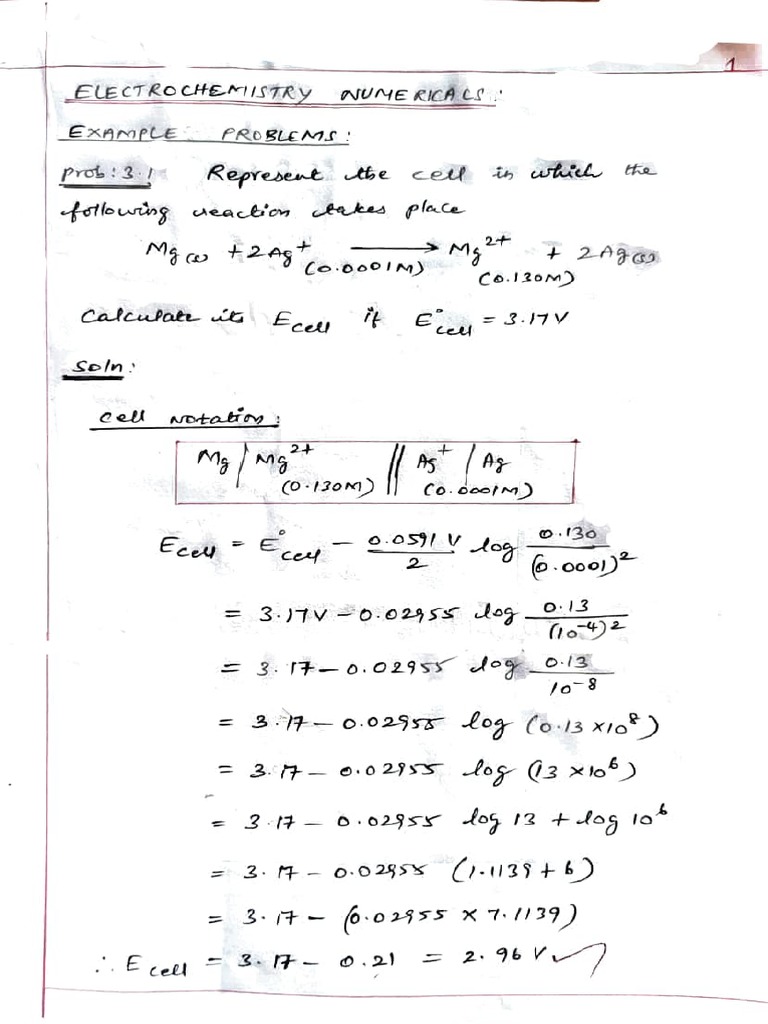 1
ELECTROCHEMISTRY NUMERICALS:
EXAMPLE PROBLEMS:
prob: 3.1 Represent the cell in which the
following reaction takes place
Mg(s) + 2Ag⁺ (0.0001M) ⟶ Mg²⁺ (0.130M) + 2Ag(s)
Calculate its Ecell if E°cell = 3.17V
Soln:
Cell notation:
Mg / Mg²⁺ (0.130M) // Ag⁺ (0.0001M) / Ag
Ecell = E°cell − 0.0591 V / 2 log 0.130 / (0.0001)²
= 3.17V − 0.02955 log 0.13 / (10⁻⁴)²
= 3.17 − 0.02955 log 0.13 / 10⁻⁸
= 3.17 − 0.02955 log (0.13 × 10⁸)
= 3.17 − 0.02955 log (13 × 10⁶)
= 3.17 − 0.02955 log 13 + log 10⁶
= 3.17 − 0.02955 (1.1139 + 6)
= 3.17 − (0.02955 × 7.1139)
∴ Ecell = 3.17 − 0.21 = 2.96 V